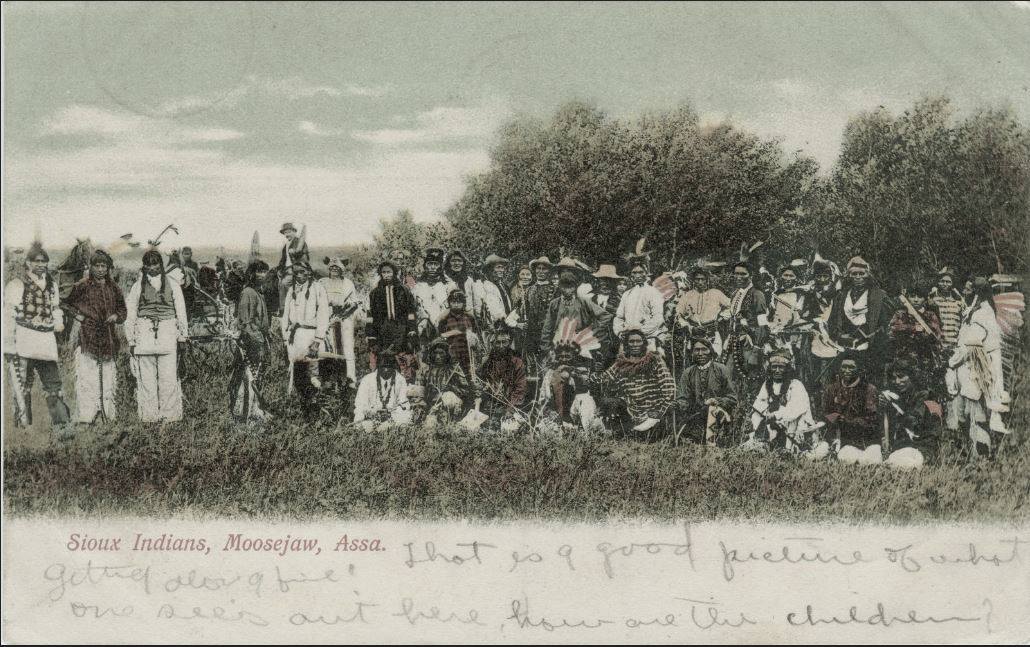 Sioux Indians, Moosejaw, Assa. That is a good picture of what
Getting along fine!
one sees out here, how are the children?